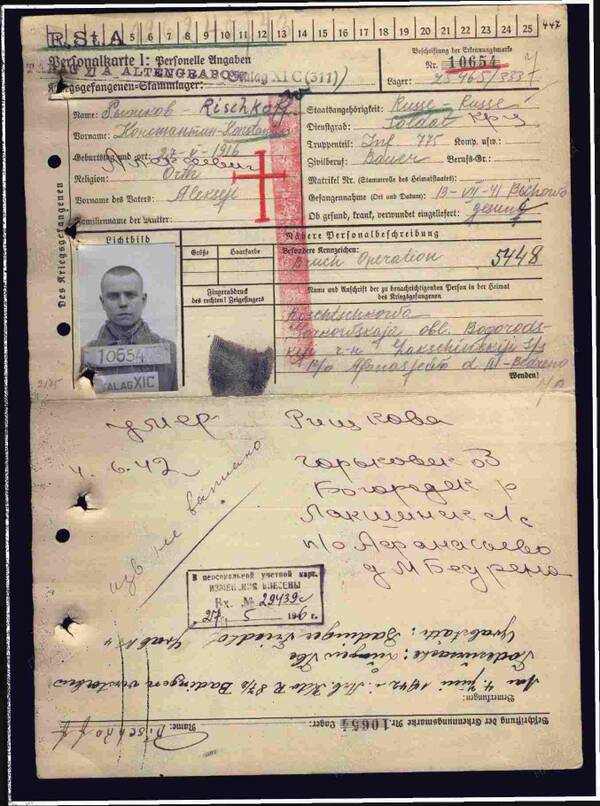 R.St.A
5 6 7 8 9 10 11 12 13 14 15 16 17 18 19 20 21 22 23 24 25
447
Personalkarte I: Personelle Angaben
Beschriftung der Erkennungsmarke
Nr. 10654
STALAG XI A ALTENGRABOW
Stalag XI C (311)
Kriegsgefangenen-Stammlager:
Lager:
Des Kriegsgefangenen
Name: Рышков - Rischkoff
Staatsangehörigkeit: Russe - Russe
Vorname: Константин - Konstantin
Dienstgrad: Soldat
Truppenteil: Inf 475 Komp. usw.:
Geburtstag und -ort: 27-V-1916
Zivilberuf: Bauer Berufs-Gr.:
Religion: Orth
Matrikel Nr. (Stammrolle des Heimatstaates):
Vorname des Vaters: Aleksej
Gefangennahme (Ort und Datum): 13-VII-41
Familienname der Mutter:
Ob gesund, krank, verwundet eingeliefert: gesund
Lichtbild
Nähere Personalbeschreibung
Größe
Haarfarbe
Besondere Kennzeichen:
Bruch Operation
5448
Fingerabdruck
des rechten! Zeigefingers
Name und Anschrift der zu benachrichtigenden Person in der Heimat
des Kriegsgefangenen
obl. Bogorods-
kij r-n
P/o Afanasjewo d.
Wenden!
10654
STALAG XI C
умер Ришкова
4.6.42 Горьковск об
Богородск р
Лакшинск с
п/о Афанасьево
д М Бедрена
изв не
В персональной учетной карт.
ИЗМЕНЕНИЯ ВНЕСЕНЫ
Вх. № 29439с
27 5 196 г.
Grab No 4
Grabstätte: Badingen Friedhof
Todesursache:
Am 4. Juni 1942 i. Arb. Kdo R 875 Badingen verstorben
Bemerkungen:
Beschriftung der Erkennungsmarke Nr. 10654 Lager:
Name: Rischkoff